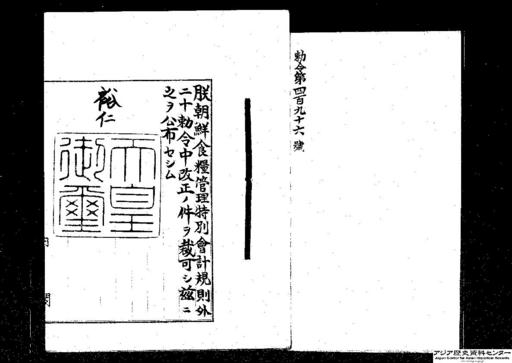 勅令第四百九十六號
朕朝鮮食糧管理特別會計規則外
二十勅令中改正ノ件ヲ裁可シ茲ニ
之ヲ公布セシム
裕仁
天皇
御璽
アジア歴史資料センター
Japan Center for Asian Historical Records